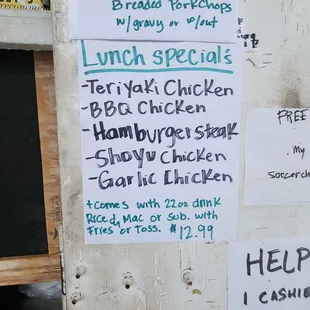 Breaded Porkchops
w/gravy or w/out
Lunch Specials
-Teriyaki Chicken
-BBQ Chicken
-Hamburger steak
-Shoyu Chicken
-Garlic Chicken
+comes with 22oz drink
Rice, Mac or Sub. with
Fries or Toss. $12.99
FREE
My
soccerch
HELP
1 CASHIE